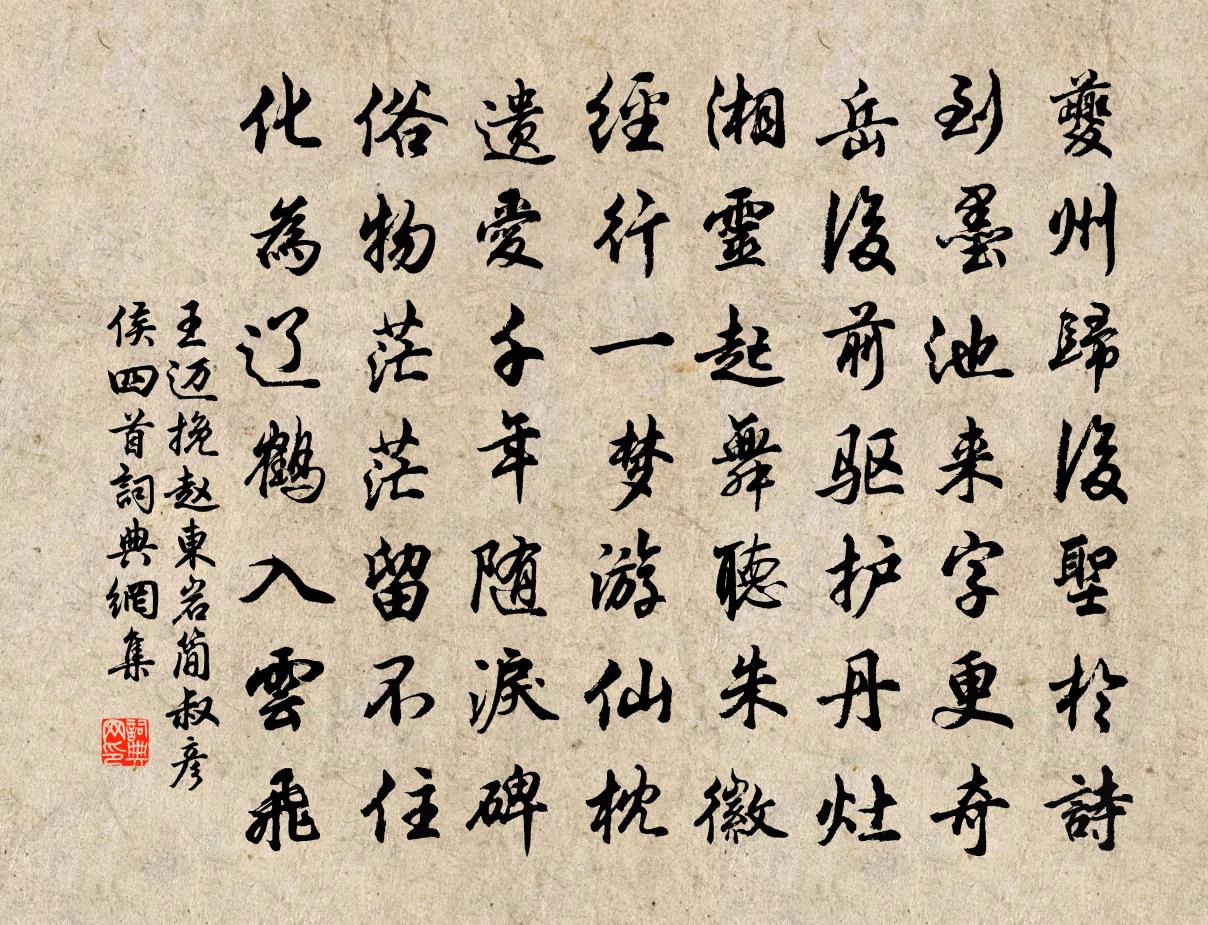 夔州歸後聖於詩
到墨池来字更奇
岳後前驱护丹灶
湘靈起舞聽朱徽
經行一梦游仙枕
遗愛千年随淚碑
俗物茫茫留不住
化為辽鹤入雲飛
王迈挽赵東岩簡叔彦
侯四首詞典網集
詞典网印